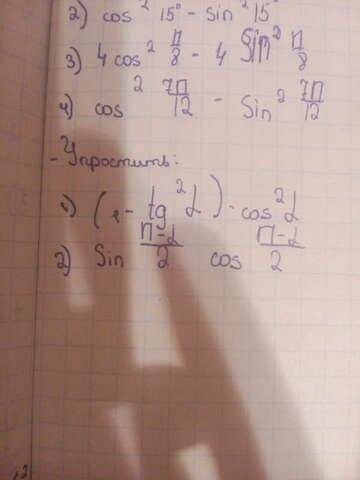 2) cos² 15° - sin² 15°
3) 4 cos² П/8 - 4 Sin² П/8
4) cos² 7П/12 - Sin² 7П/12
- Упростить:
1) (1 - tg² α) · cos² α
2) Sin (П-α)/2 cos (П-α)/2